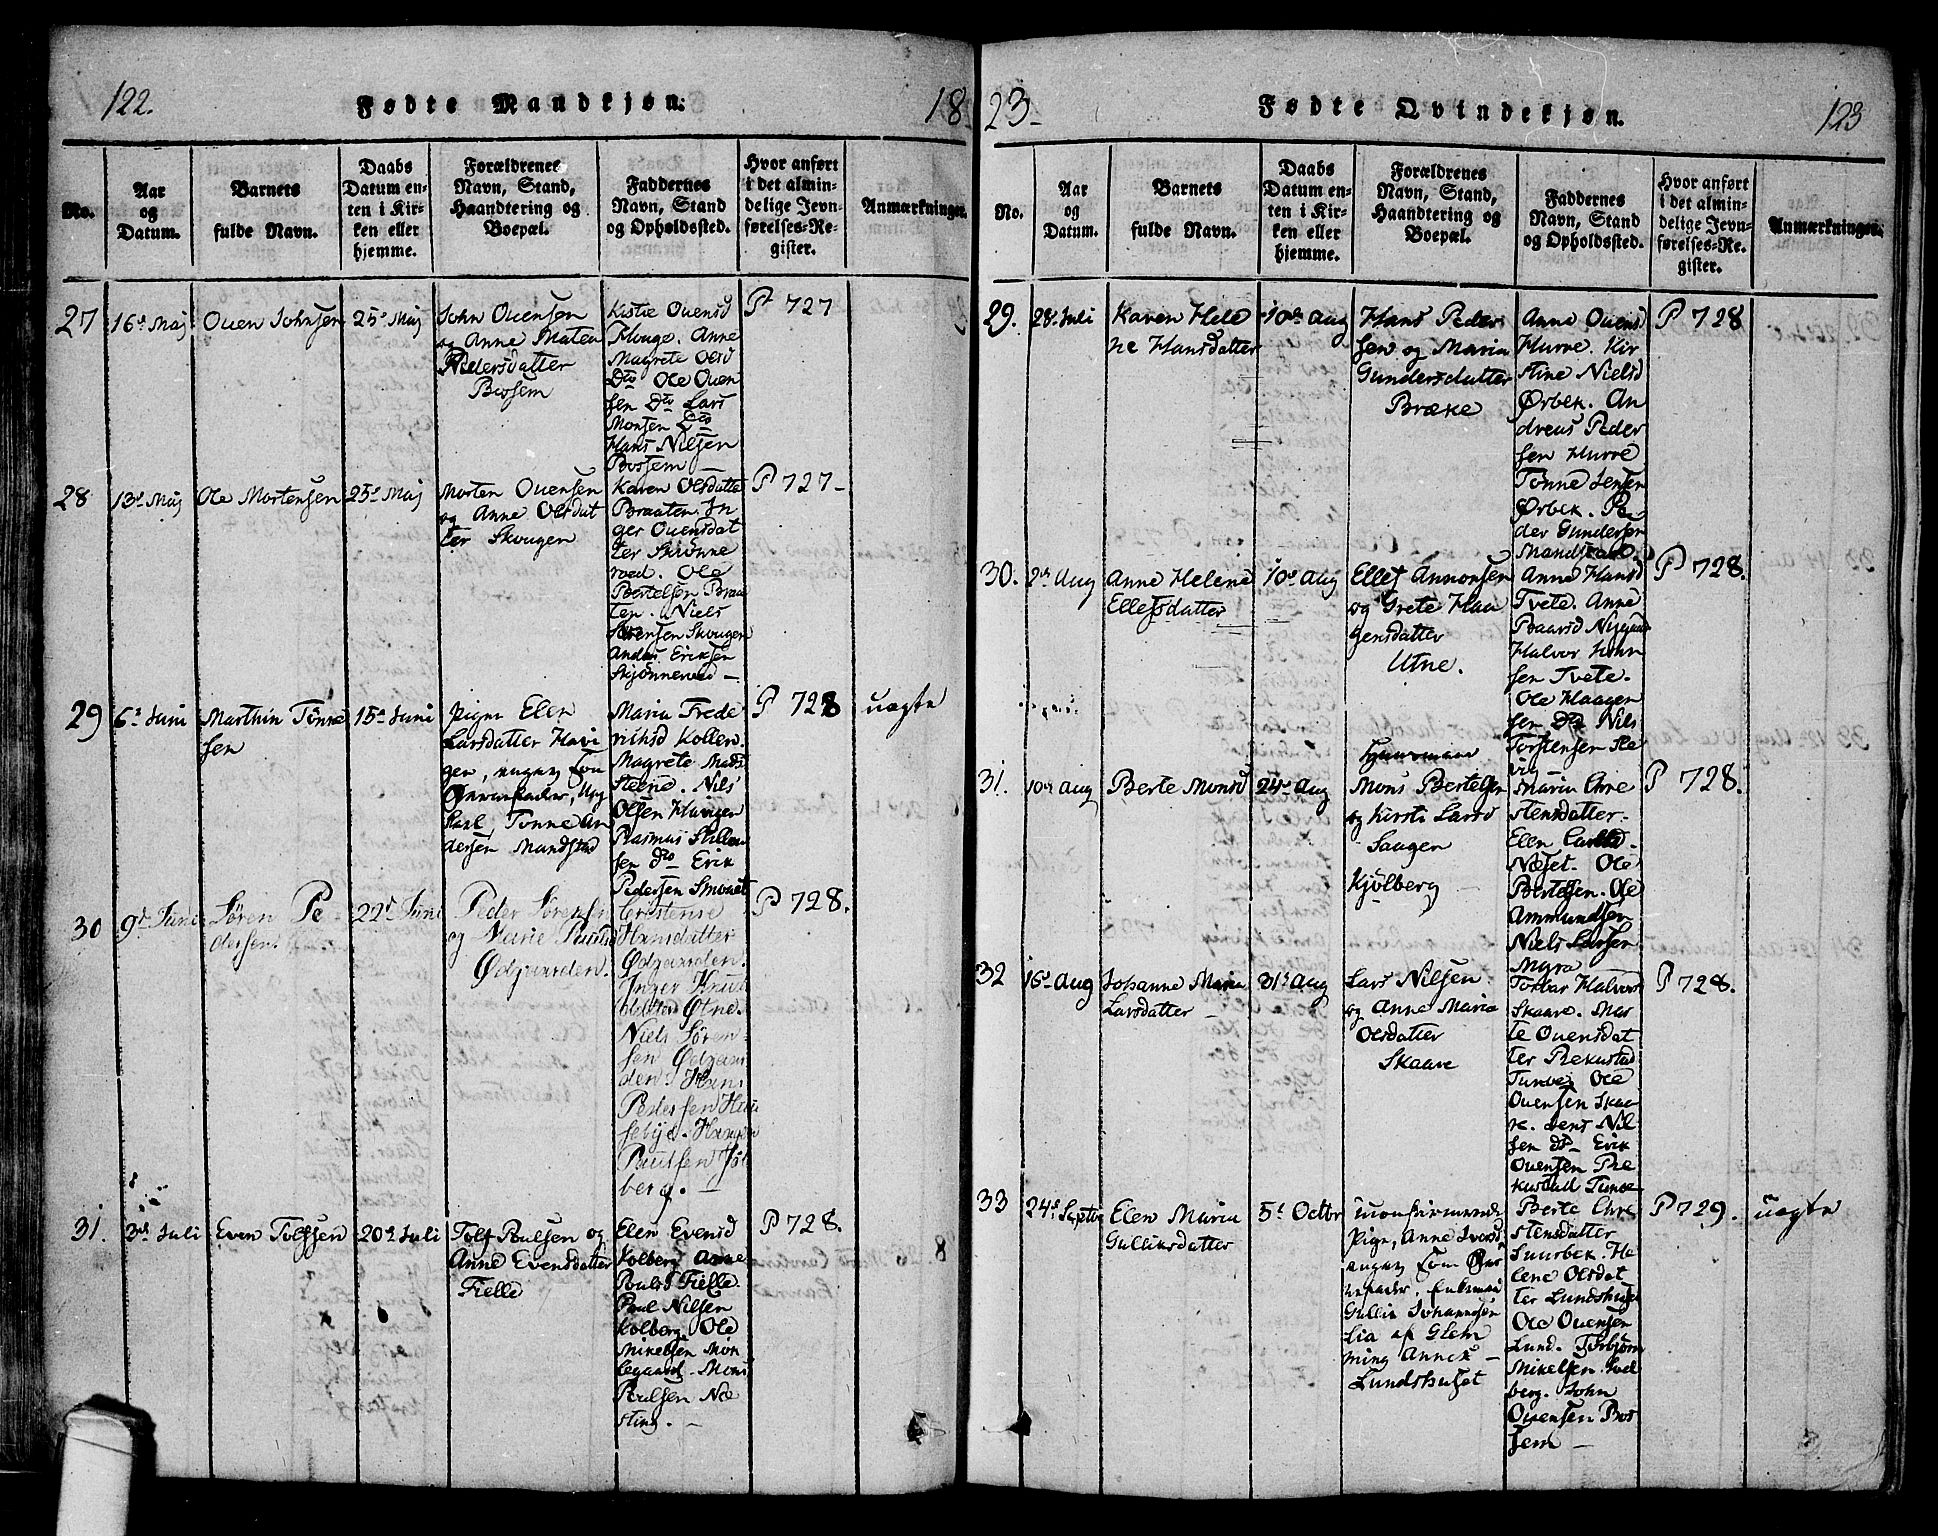 122.
Fødte Mandkjøn.
18
No.
Aar
og
Datum.
Barnets
fulde Navn.
Daabs
Datum en-
ten i Kir-
ken eller
hjemme.
Forældrenes
Navn, Stand,
Haandtering og
Boepæl.
Faddernes
Navn, Stand
og Opholdssted.
Hvor anført
i det almin-
delige Jevn-
førelses-Re-
gister.
Anmærkninger.
27
16d Maj
Ouen Johnsen
25d Maj
John Ouensen
og Anne Matea
Pedersdatter
Bossem
Kistie Ouensd
Anne
Magrete Olsd
Dto Ole Ouen
sen Dto Lars
Monsen
Hans Nilsen
Bossem
P 727
28
13d Maj
Ole Mortensen
25d Maj
Morten Ouensen
og Anne Olsdat
ter Skougen
Karen Olsdatter
Braaten. In
ger Ouensdat
ter Skiønne
roed. Ole
Bertelsen Braa
ten. Niels
Sørensen Skougen
Anders Eriksen
Skjønneroed –
P 727 –
29
6d Juni
Marthin Tønne
sen
15d Juni
Pigen Elen
Larsdatter Havi
gen, angav som
Barnefader, Ung
Karl, Tønne An
dersen Mandstad
Maria Frede
richsd Kollen.
Magrete Mads
Steene. Nils
Olsen Havigen
Rasmus
sen dto Erik
Pedersen
P 728
uægte
30
9d Juni
Søren Pe-
dersen
22d Juni
Peder Sørensen
og Marie Paulsd
Ødgaarden.
Cristense
Hansdatter
Ødgaarden.
Inger Knud
datter Øtne.
Niels Søren-
sen Ødgaar
den. Hans
Pedersen Huu
sebye. Haagen
Paulsen Jøl
berg. –
P 728.
31.
3d Juli
Even Tolfsen
20d Juli
Tolf Poulsen og
Anne Evensdatter
Fielle
Elen Evensd
Kolberg Anne
Poulsd Fielle
Poul Nilsen
Kolberg. Ole
Mikelsen Mon
legaard. Mons
Poulsen Næ
sting. –
P 728.
23
Fødte Qvindekjøn.
123
No.
Aar
og
Datum.
Barnets
fulde Navn.
Daabs
Datum en-
ten i Kir-
ken eller
hjemme.
Forældrenes
Navn, Stand,
Haandtering og
Boepæl.
Faddernes
Navn, Stand
og Opholdssted.
Hvor anført
i det almin-
delige Jevn-
førelses-Re-
gister.
Anmærkninger.
29.
28d Juli
Karen Hele
ne Hansdatter
10d Aug
Hans Peder
sen og Maria
Gundersdatter
Bræke
Anne Ouens
Hurre. Kir
stine Nielsd
Ørbek. An
dreas Peder
sen Hurre
Tønne Jensen
Ørbek. Pe-
der Gundersen
Mandstad.
P 728
30.
2d Aug
Anne Helene
Ellefsdatter
10d Aug
Ellef Annonsen
og Grete Haa
gensdatter
Utne.
Anne Hansd
Tvete. Anne
Baarsd
Halvor Hansen
sen Tvete.
Ole Haagen
sen Dto Nils
Torstensen Re
vig
P 728.
31.
10d Aug
Berte Monsd
24d Aug
Huusmand
Mons Bertelsen
og Kirsti Larsd
Saugen
Kjølberg
Maria Chre
stensdatter.
Elen
Næset. Ole
Bertelsen. Ole
Ammundsen
Niels Larsen
Myra
P 728.
32
16d Aug
Johanne Maria
Larsdatter
31d Aug
Lars Nilsen
og Anne Maria
Olsdatter
Skaare
Torbor Halvors
Skaare. Mar
te Ouensdat
ter Prekustad
Tunøe. Ole
Ouensen Skaa
re. Jens Nil
sen do Erik
Ouensen Pre
kustad Tunøe
P 728.
33
24d Septbr
Elen Maria
Gulliksdatter
5d Octbr
uconfirmerede
Pige, Anne Iversd
angav som Bar
nefader, Enkemand
Gullik Johannesen
Lia af Glem
ming Annex –
Lundshuset
Berte Chre
stensdatter
Suurbek. He
lene Olsdat
ter Lundshuset
Ole Ouensen
Lund. Torbjørn
Mikelsen Sol
berg. John
Ouensen Bos
sem –
P 729.
uægte